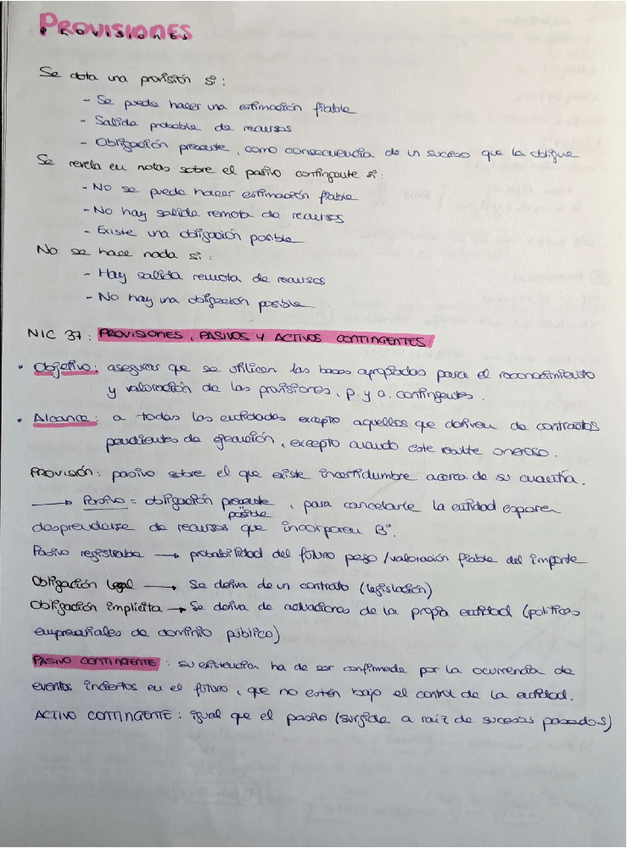 PROVISIONES
Se dota una provisión si:
- Se puede hacer una estimación fiable
- Salida probable de recursos
- Obligación presente, como consecuencia de un suceso que la obligue
Se revela en notas sobre el pasivo contingente si:
- No se puede hacer estimación fiable
- No hay salida remota de recursos
- Existe una obligación posible
No se hace nada si:
- Hay salida remota de recursos
- No hay una obligación posible
NIC 37: PROVISIONES, PASIVOS Y ACTIVOS CONTINGENTES
• Objetivo: asegurar que se utilicen las bases apropiadas para el reconocimiento
y valoración de las provisiones, p. y a. contingentes.
• Alcance: a todas las entidades excepto aquellos que deriven de contratos
pendientes de ejecución, excepto cuando este resulte oneroso.
PROVISIÓN: pasivo sobre el que existe incertidumbre acerca de su cuantía.
→ Pasivo = obligación presente, para cancelarla la entidad espera
posible
desprenderse de recursos que incorporen Bº.
Pasivo registrable → probabilidad del futuro pago/valoración fiable del importe
Obligación legal → Se deriva de un contrato (legislación)
Obligación implícita → Se deriva de actuaciones de la propia entidad (políticas
empresariales de dominio público)
PASIVO CONTINGENTE: su existencia ha de ser confirmada por la ocurrencia de
eventos inciertos en el futuro, que no estén bajo el control de la entidad.
ACTIVO CONTINGENTE: igual que el pasivo (surgida a raíz de sucesos pasados)